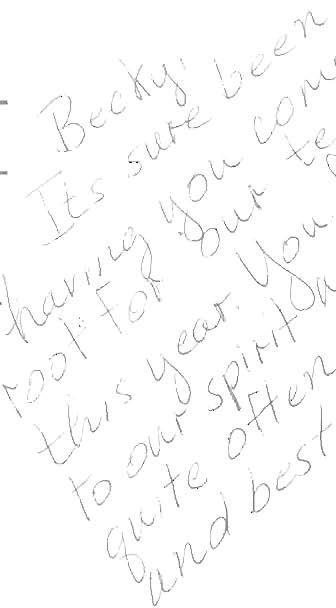 Becky,
Its sure been
having you
root for our
this year. You
to our spirit
quite often
and best